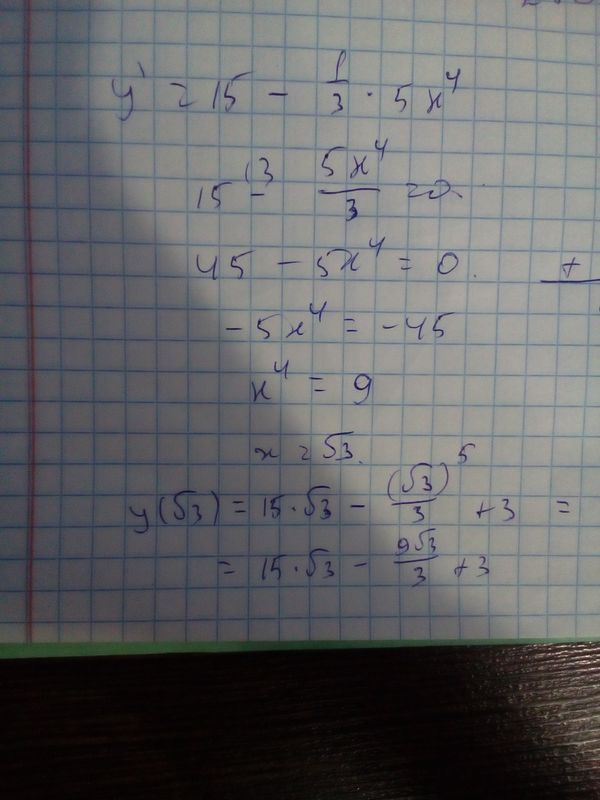 y' = 15 - 1/3 · 5x⁴
15 -^(3 5x⁴/3 = 0.
45 - 5x⁴ = 0. +
-5x⁴ = -45
x⁴ = 9
x = √3.
y(√3) = 15·√3 - (√3)⁵/3 + 3 =
= 15·√3 - 9√3/3 + 3